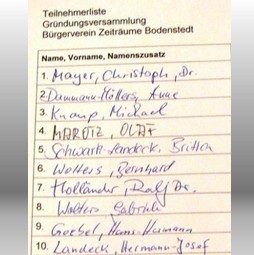 Teilnehmerliste
Gründungsversammlung
Bürgerverein Zeiträume Bodenstedt
Name, Vorname, Namenszusatz
1. Mayer, Christoph, Dr.
2. Dammann-Möllers, Anne
3. Knaup, Michael
4. MAROTZ, OLAF
5. Schwark-Landeck, Britta
6. Wolters, Bernhard
7. Holländer, Ralf Dr.
8. Wolters Gabriele
9. Goebel, Hans-Hermann
10. Landeck, Hermann-Josef